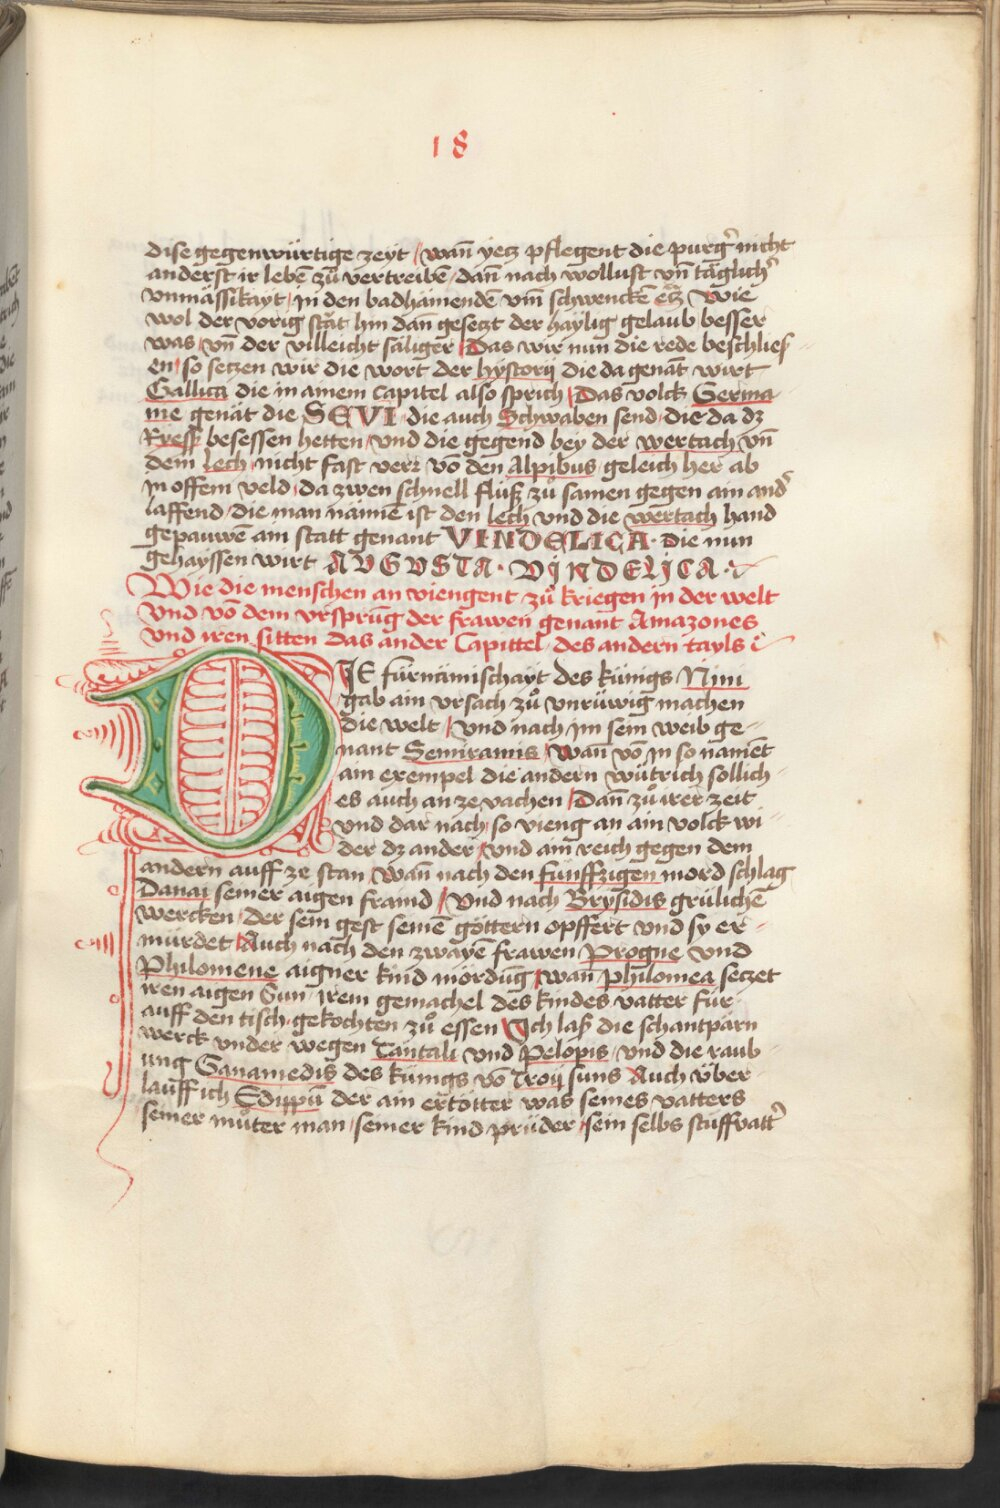 18
dise gegenwürtige zeyt / wañ yecz pflegent die purgʼ nicht
anderst ir lebē zů vertreibē / dañ nach wollust vñ täglichʼ
vnmässikayt / in den badhämendē vm̄ schwenckē etc̄ Wie
wol der vorig stät hin dañ geseczt der haylig gelaub besser
was / vñ der villeicht säliger / Das wir nun die rede beschließ-
en / so seczen wir die wort der hystorij die da genāt wirt
Gallica die in ainem capitel also sprich / Das volck Germa
nie genāt die SEVI / die auch Schwaben send / die da dz
Rieß besessen hetten / vnd die gegend bey der wertach vñ
dem lech / nicht fast verr vō den Alpibus / geleich her ab
in offem veld / da zwen schnell fluß zů samen gegen ain andʼ
lauffend / die man nāmē ist den lech vnd die wertach hand
gepauwē ain statt genant VINDELICA · die nun
gehayssen wirt AVGVSTA · VINDELICA ·
Wie die menschen an viengent zů kriegen in der welt
vnd vō dem vrsprūg der frawen genant Amazones
vnd iren sitten Das ander Capittel / des andern tayls
DIE fürnämischayt des künigs Nini
gab ain vrsach zů vnrüwig machen
die welt / vnd nach im sein weib ge-
nant Semiramis / Wañ vō in so namēt
ain exempel die andern wütrich sollich-
es auch an ze vachen / Dañ zů irer zeit
vnd dar nach so vieng an ain volck wi-
der dz ander / vnd ain reich gegen dem
andern auff ze stan / wañ nach den fünffzigen mord schlag
Danai seiner aigen fraind / vnd nach Brysidis grülichē
wercken / der sein gest seinē göttern opffert vnd sy er-
mürdet / Auch nach den zwayē frawen Progne vnd
Philomene aigner kind mördūg / wañ philomea seczet
iren aigen Sun / irem gemachel des kindes vatter für
auff den tisch gekochten zů essen / Ich laß die schantpärn
werck vnder wegen Tantali vnd Pelopis / vnd die raub-
ung Ganamedis des künigs vō Troij suns Auch über
lauff ich Edippū der ain ertötter was seines vatters
seiner můter man / seiner kind prüder / sein selbs stüffvattʼ